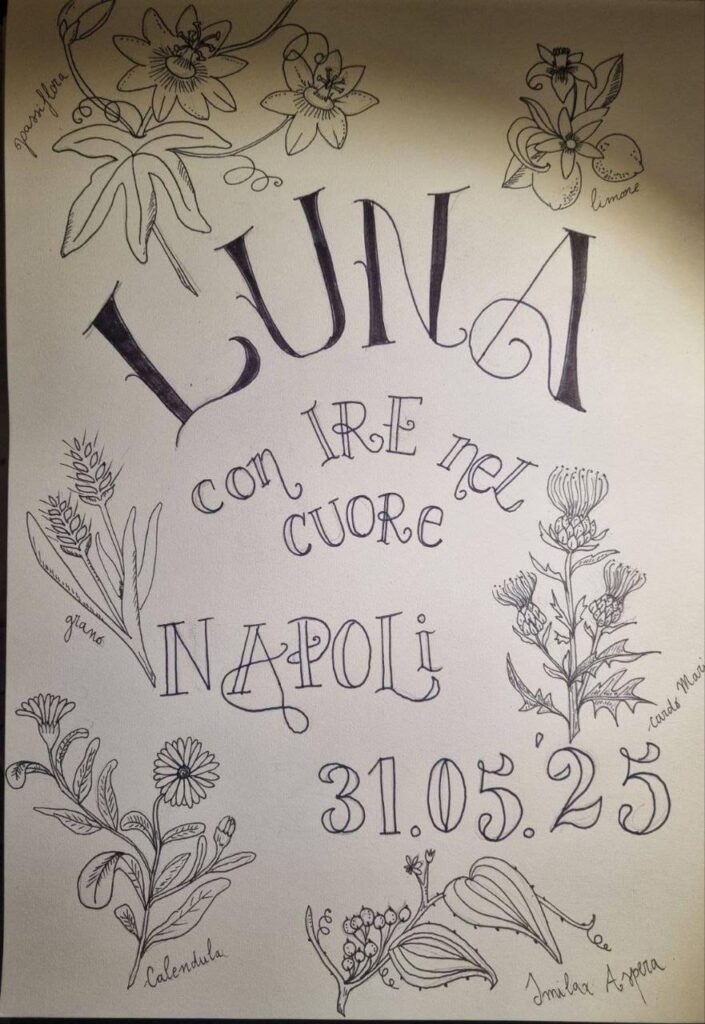 passiflora
limone
LUNA
con IRE nel
CUORE
grano
NAPOLi
cardo Mari
31.05.'25
Calendula
Smilax Aspera